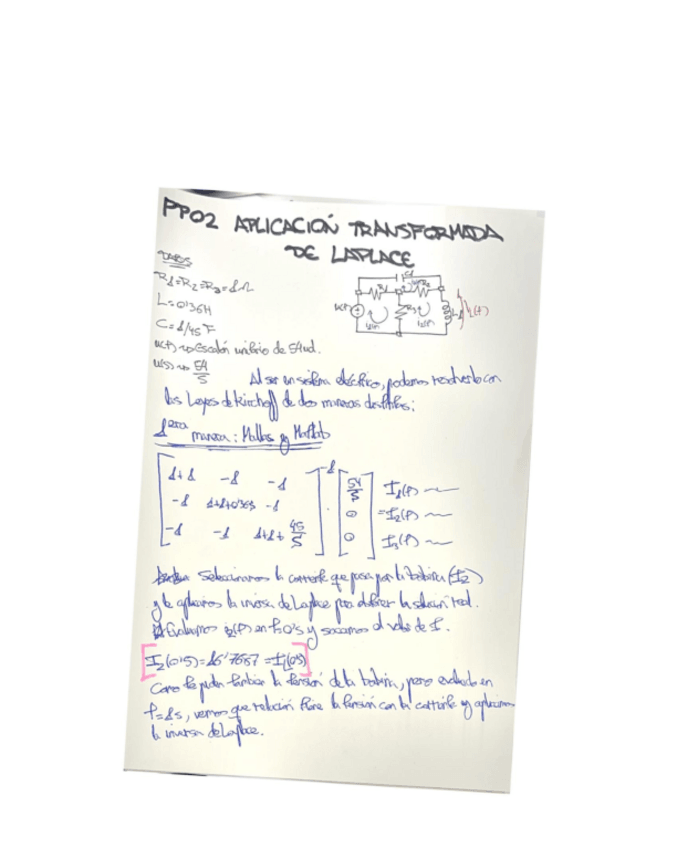 PP02 APLICACIÓN TRANSFORMADA
DE LAPLACE
DATOS
R1=R2=R3=1Ω
L=0'36H
C=1/45 F
u(t) → Escalón unitario de 54ud.
u(s) → 54/S
u(t) R1 R2 R3 i1(t) i2(t) iL(t)
Al ser un sistema eléctrico, podemos resolverlo con
las Leyes de Kirchoff de dos maneras distintas:
1era manera: Mallas y Matlab
1+1 -1 -1
-1 1+1+0'36S -1
-1 -1 1+1+ 45/S
-1
54/S
0
0
I1(t)
= I2(t)
I3(t)
Seleccionamos la corriente que pasa por la bobina (I2)
y le aplicamos la inversa de Laplace para obtener la solución real.
Evaluamos i2(t) en t=0's y sacamos el valor de I.
I2(0'5)=16'7667 = IL(0'5)
Como te piden también la tensión de la bobina, pero evaluado en
t=1s, vemos que relación tiene la tensión con la corriente y aplicamos
la inversa de Laplace.